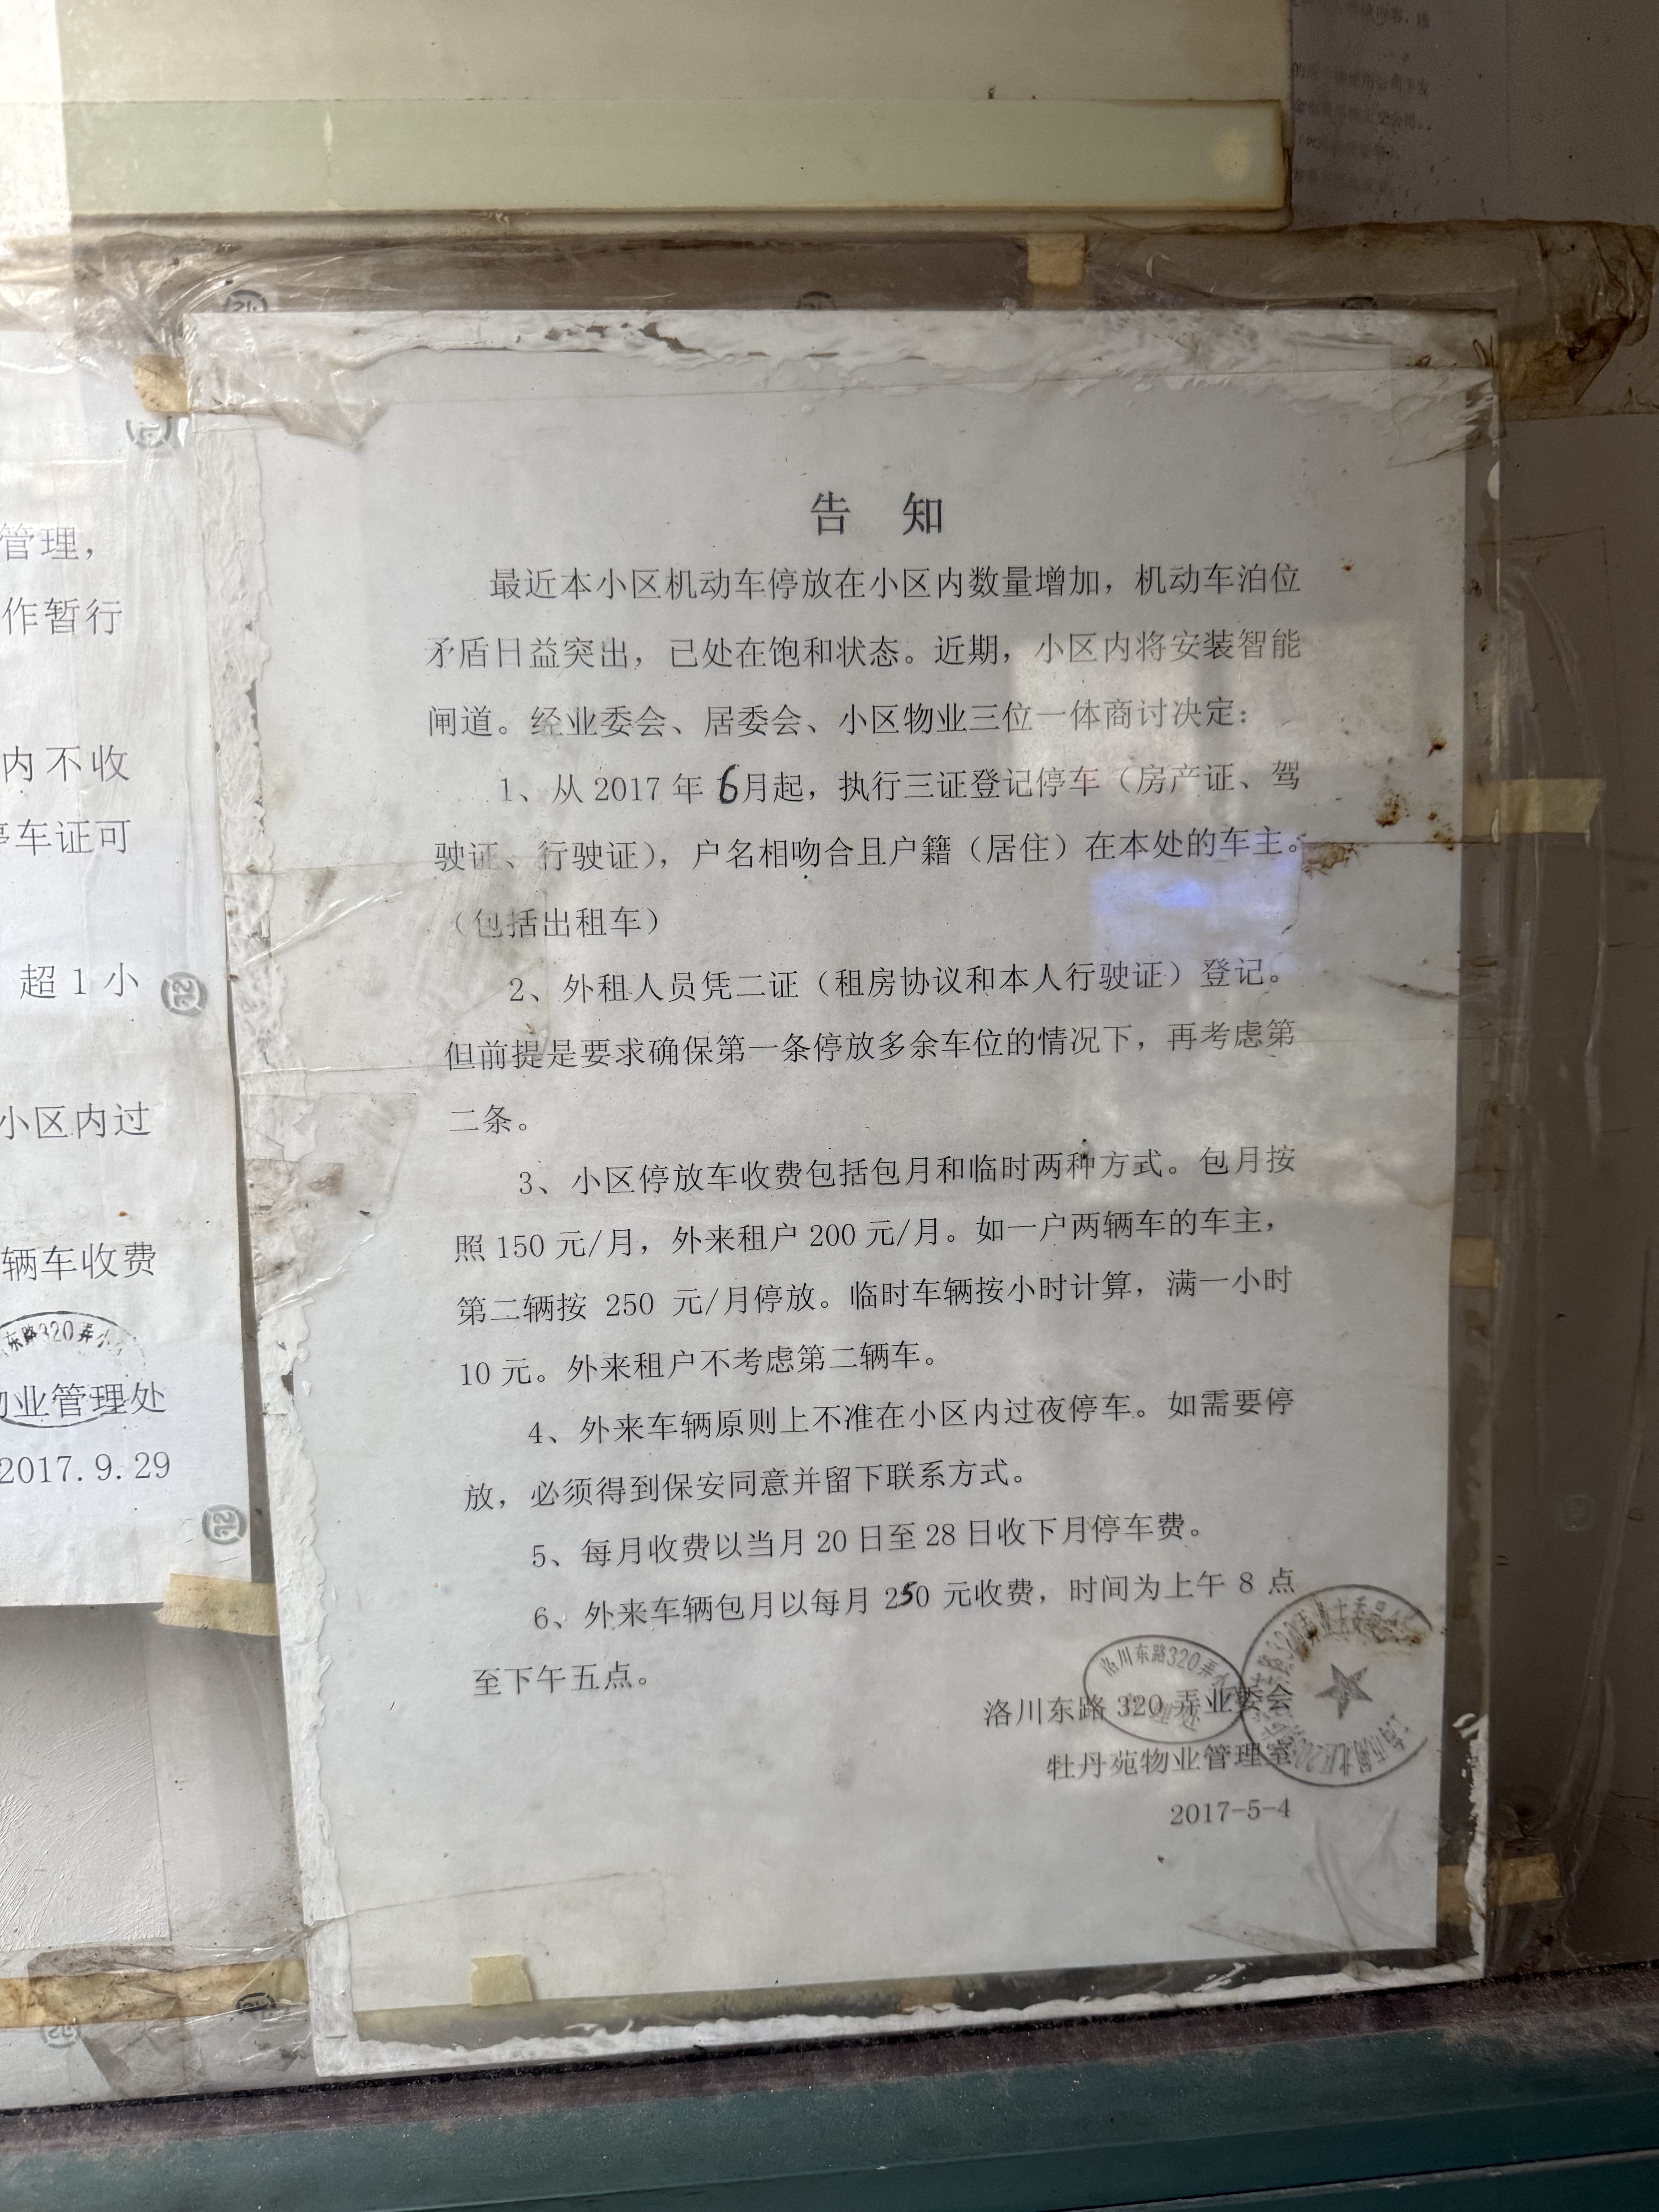 告 知
最近本小区机动车停放在小区内数量增加，机动车泊位
矛盾日益突出，已处在饱和状态。近期，小区内将安装智能
闸道。经业委会、居委会、小区物业三位一体商讨决定：
1、从 2017 年 6月起，执行三证登记停车（房产证、驾
驶证、行驶证），户名相吻合且户籍（居住）在本处的车主。
（包括出租车）
2、外租人员凭二证（租房协议和本人行驶证）登记。
但前提是要求确保第一条停放多余车位的情况下，再考虑第
二条。
3、小区停放车收费包括包月和临时两种方式。包月按
照 150 元/月，外来租户 200 元/月。如一户两辆车的车主，
第二辆按 250 元/月停放。临时车辆按小时计算，满一小时
10 元。外来租户不考虑第二辆车。
4、外来车辆原则上不准在小区内过夜停车。如需要停
放，必须得到保安同意并留下联系方式。
5、每月收费以当月 20 日至 28 日收下月停车费。
6、外来车辆包月以每月 250 元收费，时间为上午 8 点
至下午五点。
洛川东路 320 弄业委会
牡丹苑物业管理室
2017-5-4
洛川东路320弄
管理，
作暂行
内不收
停车证可
超 1 小
小区内过
辆车收费
东路320弄
物业管理处
2017.9.29